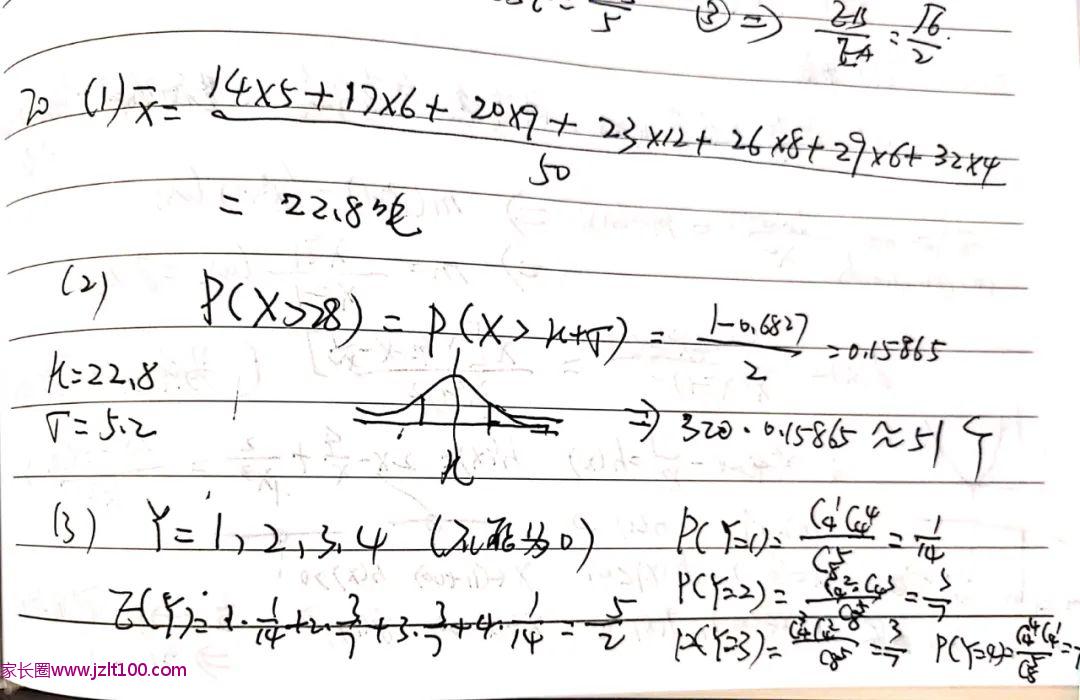 5 ③ ⇒ = √6/2.
20 (1) x̄ = (14×5+17×6+20×9+23×12+26×8+29×6+32×4)/50
= 22.8吨
(2) P(X>28) = P(X>μ+σ) = (1-0.6827)/2 = 0.15865
μ=22.8
σ=5.2 ⇒ 320·0.15865≈51个
μ
(3) Y=1,2,3,4 (不能为0) P(Y=1)=C₄¹C₄⁴/C₈⁵=1/14
P(Y=2)=C₄²C₄³/C₈⁵=3/7
E(Y)=1·1/14+2·3/7+3·3/7+4·1/14=5/2 P(Y=3)=C₄³C₄²/C₈⁵=3/7 P(Y=4)=C₄⁴C₄¹/C₈⁵=
家长圈www.jzlt100.com